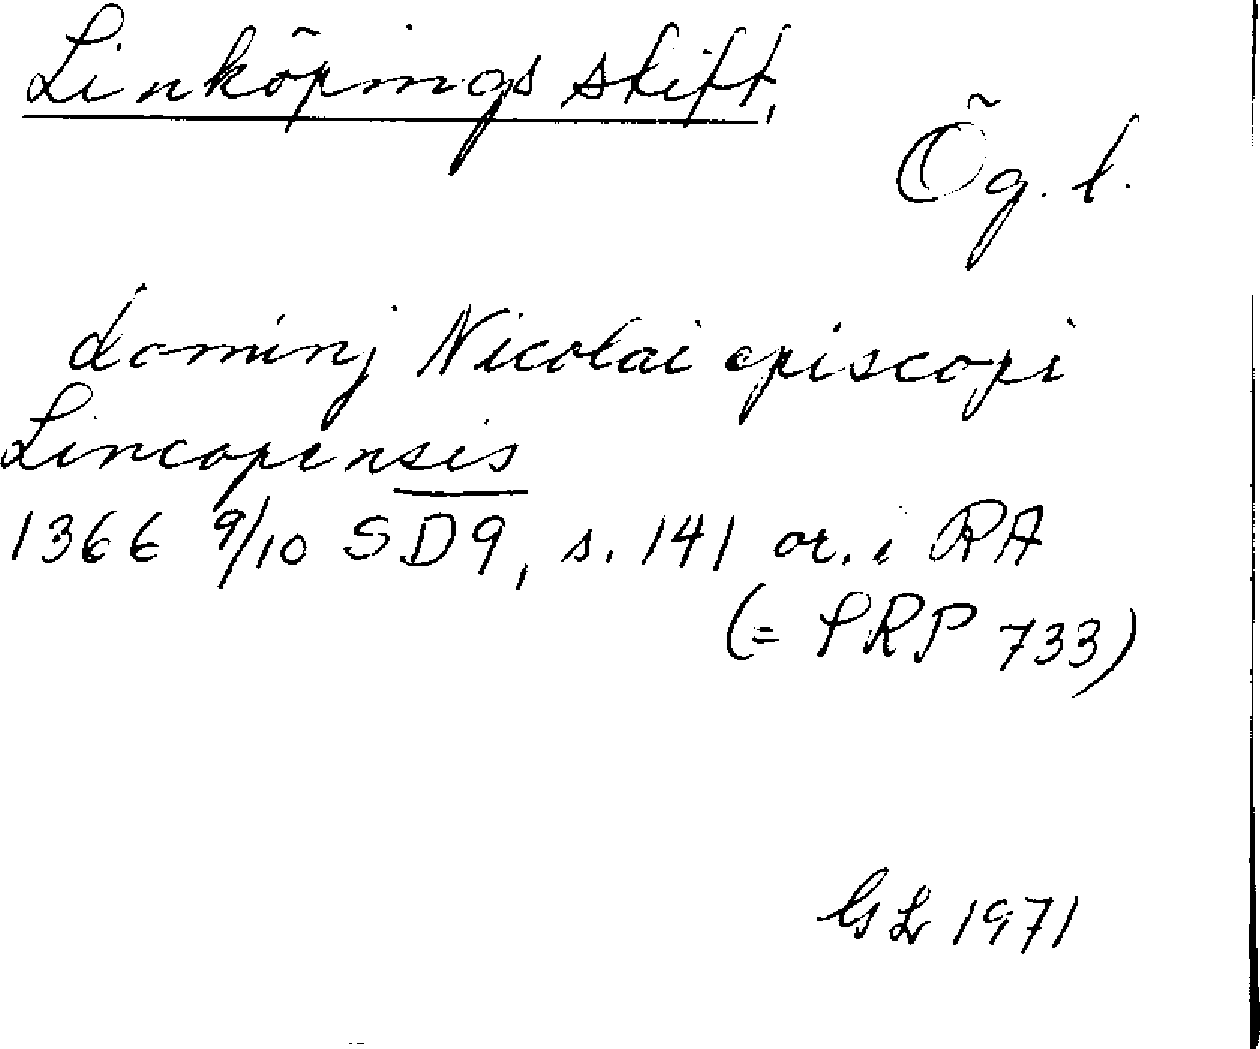 Linköpings stift,
Ög. l.
dominj Nicolai episcopi
Lincopensis
1366 9/10 SD9, s. 141 or. i RA
(= PRP 733)
GL 1971